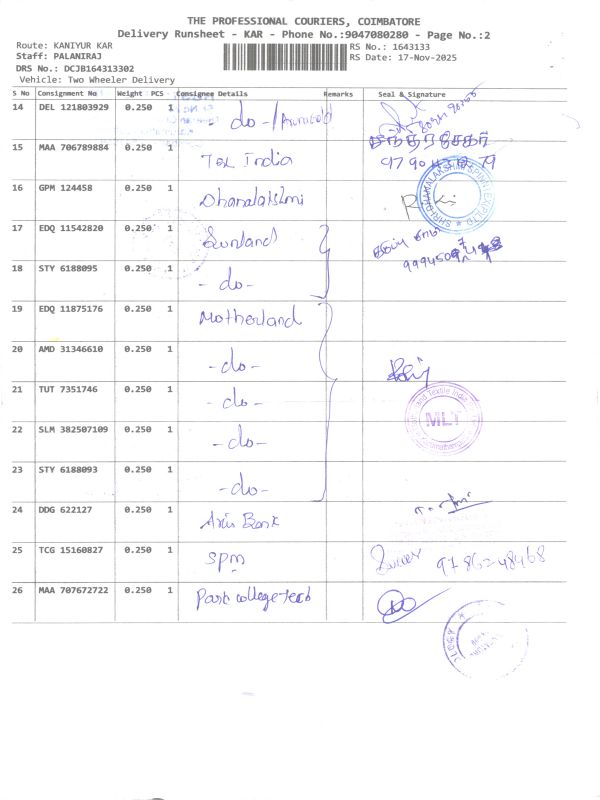 THE PROFESSIONAL COURIERS, COIMBATORE
Delivery Runsheet - KAR - Phone No.:9047080280 - Page No.:2
Route: KANIYUR KAR
RS No.: 1643133
Staff: PALANIRAJ
RS Date: 17-Nov-2025
DRS No.: DCJB164313302
Vehicle: Two Wheeler Delivery
S No Consignment No Weight PCS Consignee Details Remarks Seal & Signature
14 DEL 121803929 0.250 1 - do -
15 MAA 706789884 0.250 1 Tex India சந்திரசேகர்
16 GPM 124458 0.250 1 Dhanalakshmi
17 EDQ 11542820 0.250 1 Sunland
18 STY 6188095 0.250 1 - do -
19 EDQ 11875176 0.250 1 Motherland
20 AMD 31346610 0.250 1 - do -
21 TUT 7351746 0.250 1 - do -
MLT
22 SLM 382507109 0.250 1 - do -
23 STY 6188093 0.250 1 - do -
24 DDG 622127 0.250 1 Axis Bank
25 TCG 15160827 0.250 1 SPM 9786248468
26 MAA 707672722 0.250 1 Park college tech